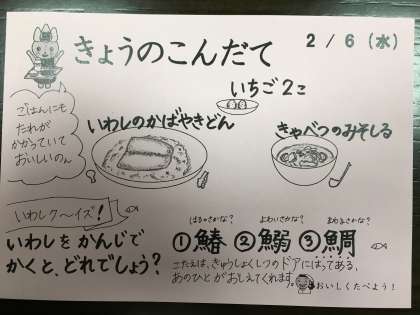 きょうのこんだて 2/6(水)
いちご2こ
ごはんにも
たれが
かかっていて
おいしいのん
いわしのかばやきどん
きゃべつのみそしる
いわしク〜イズ!
いわしをかんじで
かくと、どれでしょう?
はるのさかな? よわいさかな? まわるさかな?
①鰆 ②鰯 ③鯛
こたえは、きゅうしょくしつのドアにはってある、
あのひとがおしえてくれます。
おいしくたべよう!